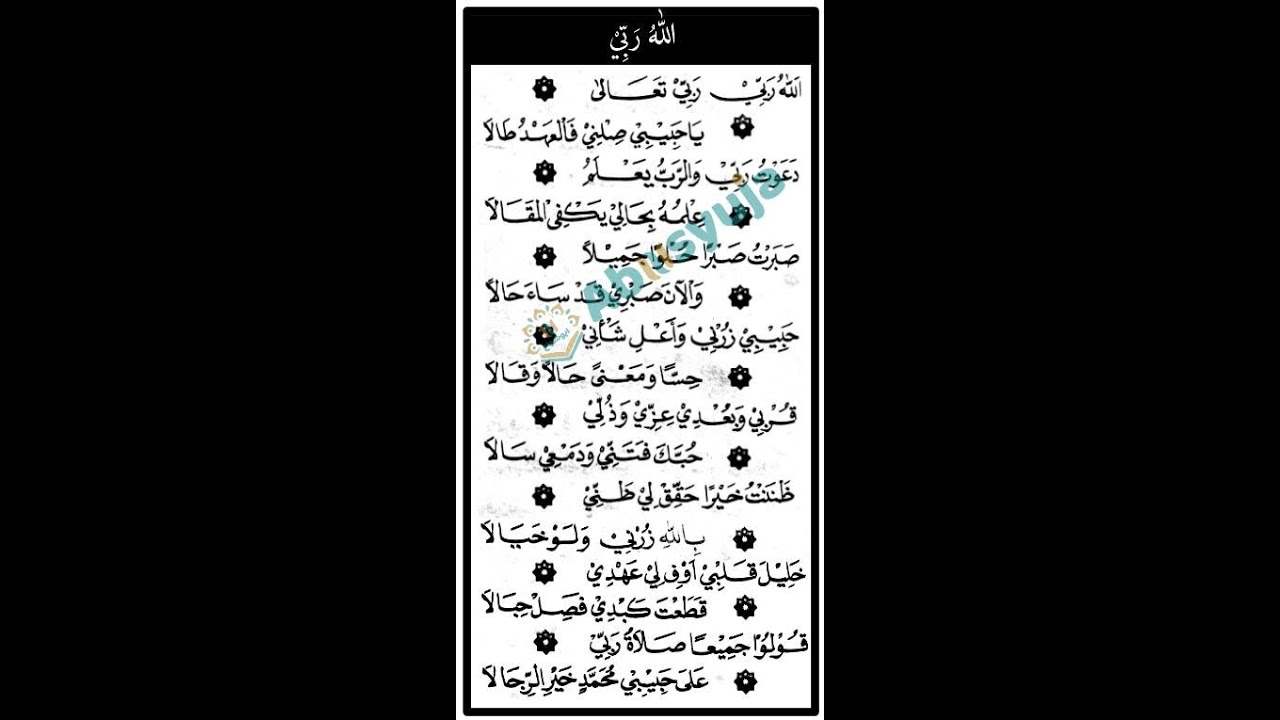 اللهُ رَبِّيْ
اَللهُ رَبِّيْ رَبِّيْ تَعَالٰى
يَاحَبِيْبِيْ صِلْنِيْ فَالْعَهْدُ طَالَا
دَعَوْتُ رَبِّيْ وَالرَّبُّ يَعْلَمُ
عِلْمُهُ بِحَالِيْ يَكْفِى الْمَقَالَا
صَبَرْتُ صَبْرًا حُلْوًا جَمِيْلًا
وَالْآنَ صَبْرِيْ قَدْ سَاءَ حَالًا
حَبِيْبِيْ زُرْنِيْ وَأَعْلِ شَأْنِيْ
حِسًّا وَمَعْنًى حَالًا وَقَالَا
قُرْبِيْ وَبُعْدِيْ عِزِّيْ وَذُلِّيْ
حُبَّكَ فَتَنِّيْ وَدَمْعِيْ سَالَا
ظَنَنْتُ خَيْرًا حَقِّقْ لِيْ ظَنِّيْ
بِاللهِ زُرْنِيْ وَلَوْ خَيَالَا
خَلِيْلَ قَلْبِيْ اَوْفِ لِيْ عَهْدِيْ
قَطَعْتَ كَبْدِيْ فَصِلْ حِبَالَا
قُوْلُوْا جَمِيْعًا صَلَاةُ رَبِّيْ
عَلَى حَبِيْبِيْ مُحَمَّدٍ خَيْرِ الرِّجَالَا
Abusyuja